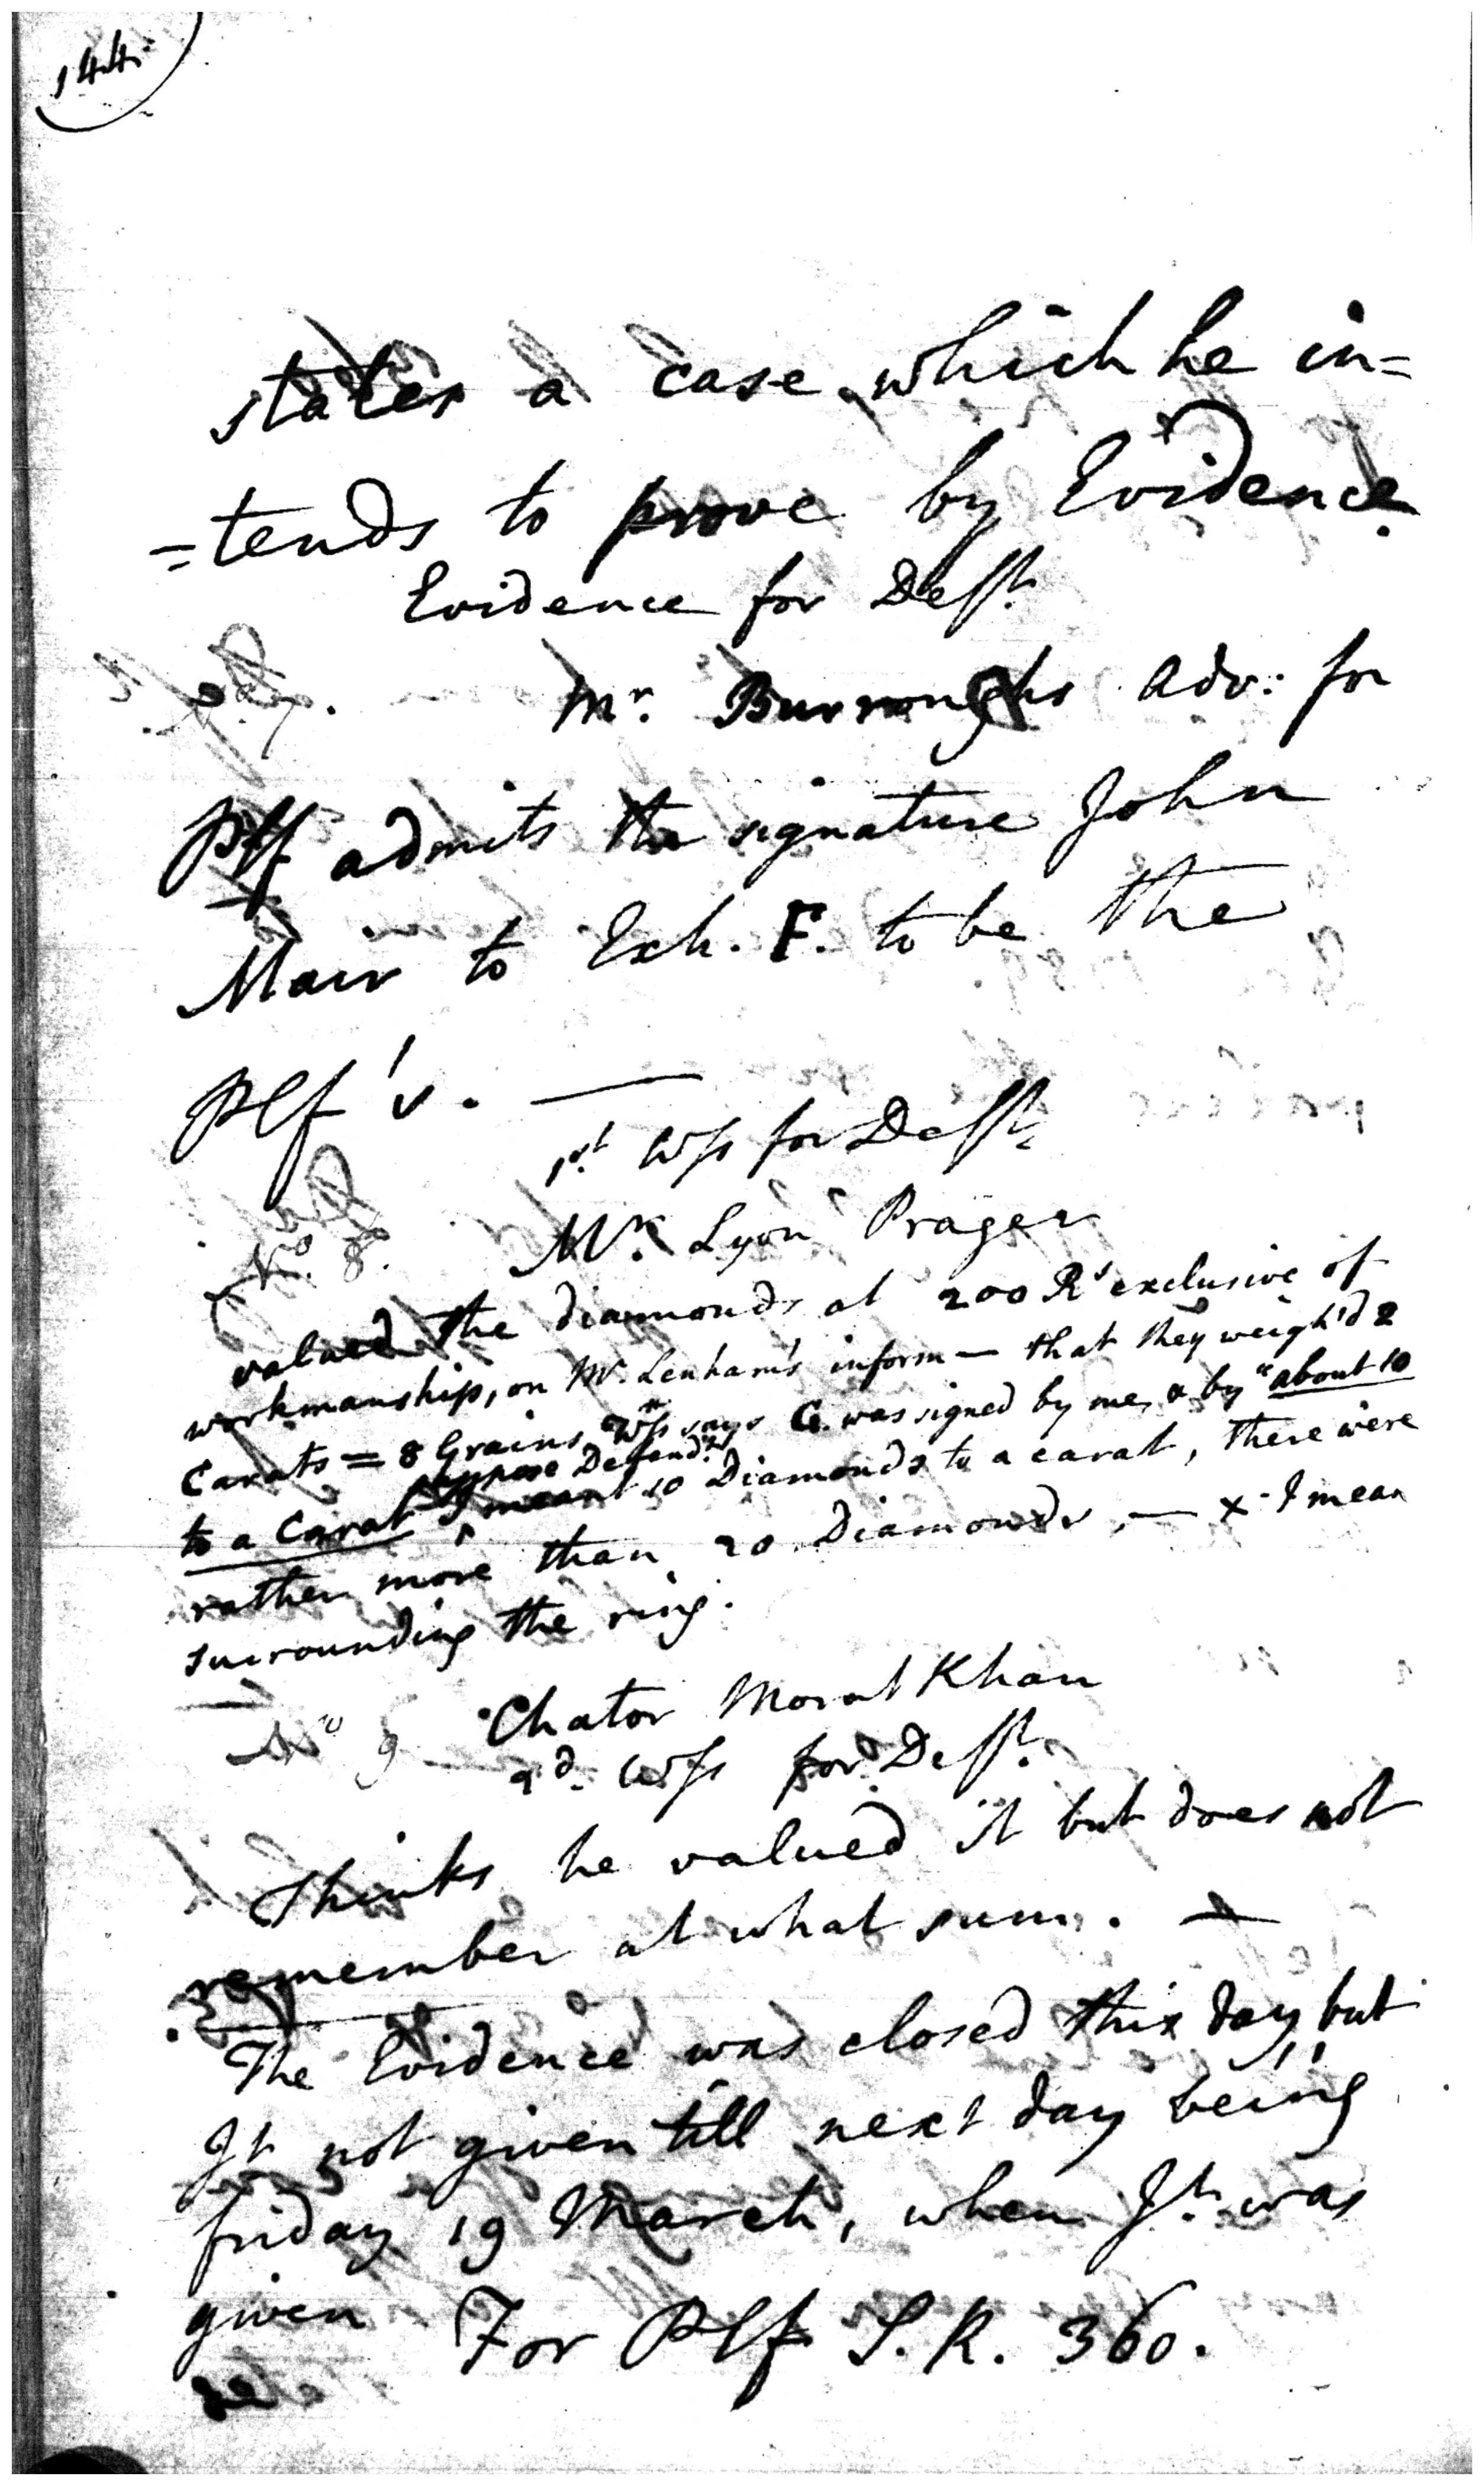 144
states a case which he in=
=tends to prove by Evidence
Evidence for Defft.
Mr. Burroughs Adv: for
Plf admits the signature John
Mair to Exh. F. to be the
Plf's. —
1st Wss for Defft.
No. 8. Mr. Lyon Prager
valued the diamonds at 200 Rs exclusive of
workmanship, on Mr. Lenham's inform— that they weigh'd 2
Carats = 8 Grains Wss says G. was signed by me, & by "about 10
to a Carat" I suppose Defend.t meant 10 Diamonds to a carat, there were
rather more than 20 Diamonds, — x - I mean
surrounding the ring.
No 9 Chator Morat Khan
2d. Wss for Defft.
Thinks he valued it but does not
remember at what sum. —
The Evidence was closed this day, but
Jt. not given till next day being
friday 19 March, when Jt. was
given For Plf S.R. 360.